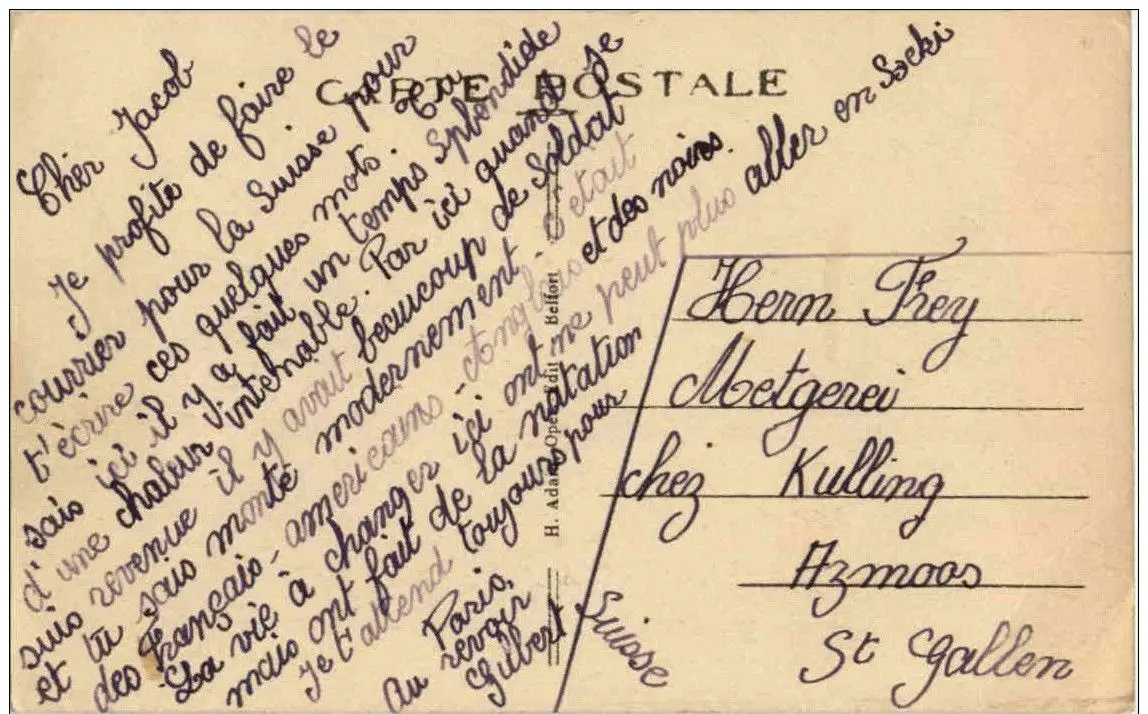 CARTE POSTALE
Cher Jacob
Je profite de faire le
courrier pour la Suisse pour
t'écrire ces quelques mots. Tu
sais ici il y a fait un temps splendide
d'une chaleur intenable. Par ici quand je
suis revenue il y avait beaucoup de Soldat
et tu sais monté modernement. S'était
des français - americains - Anglais et des noirs.
La vie à changer ici ont ne peut plus aller en
mais ont fait de la natation
Je t'attend toujours pour
Paris,
Au revoir
Hubert
H. Adam Opé Edit. Belfort
Hern Frey
Metgerei
chez Kulling
Azmoos
St Gallen
Suisse